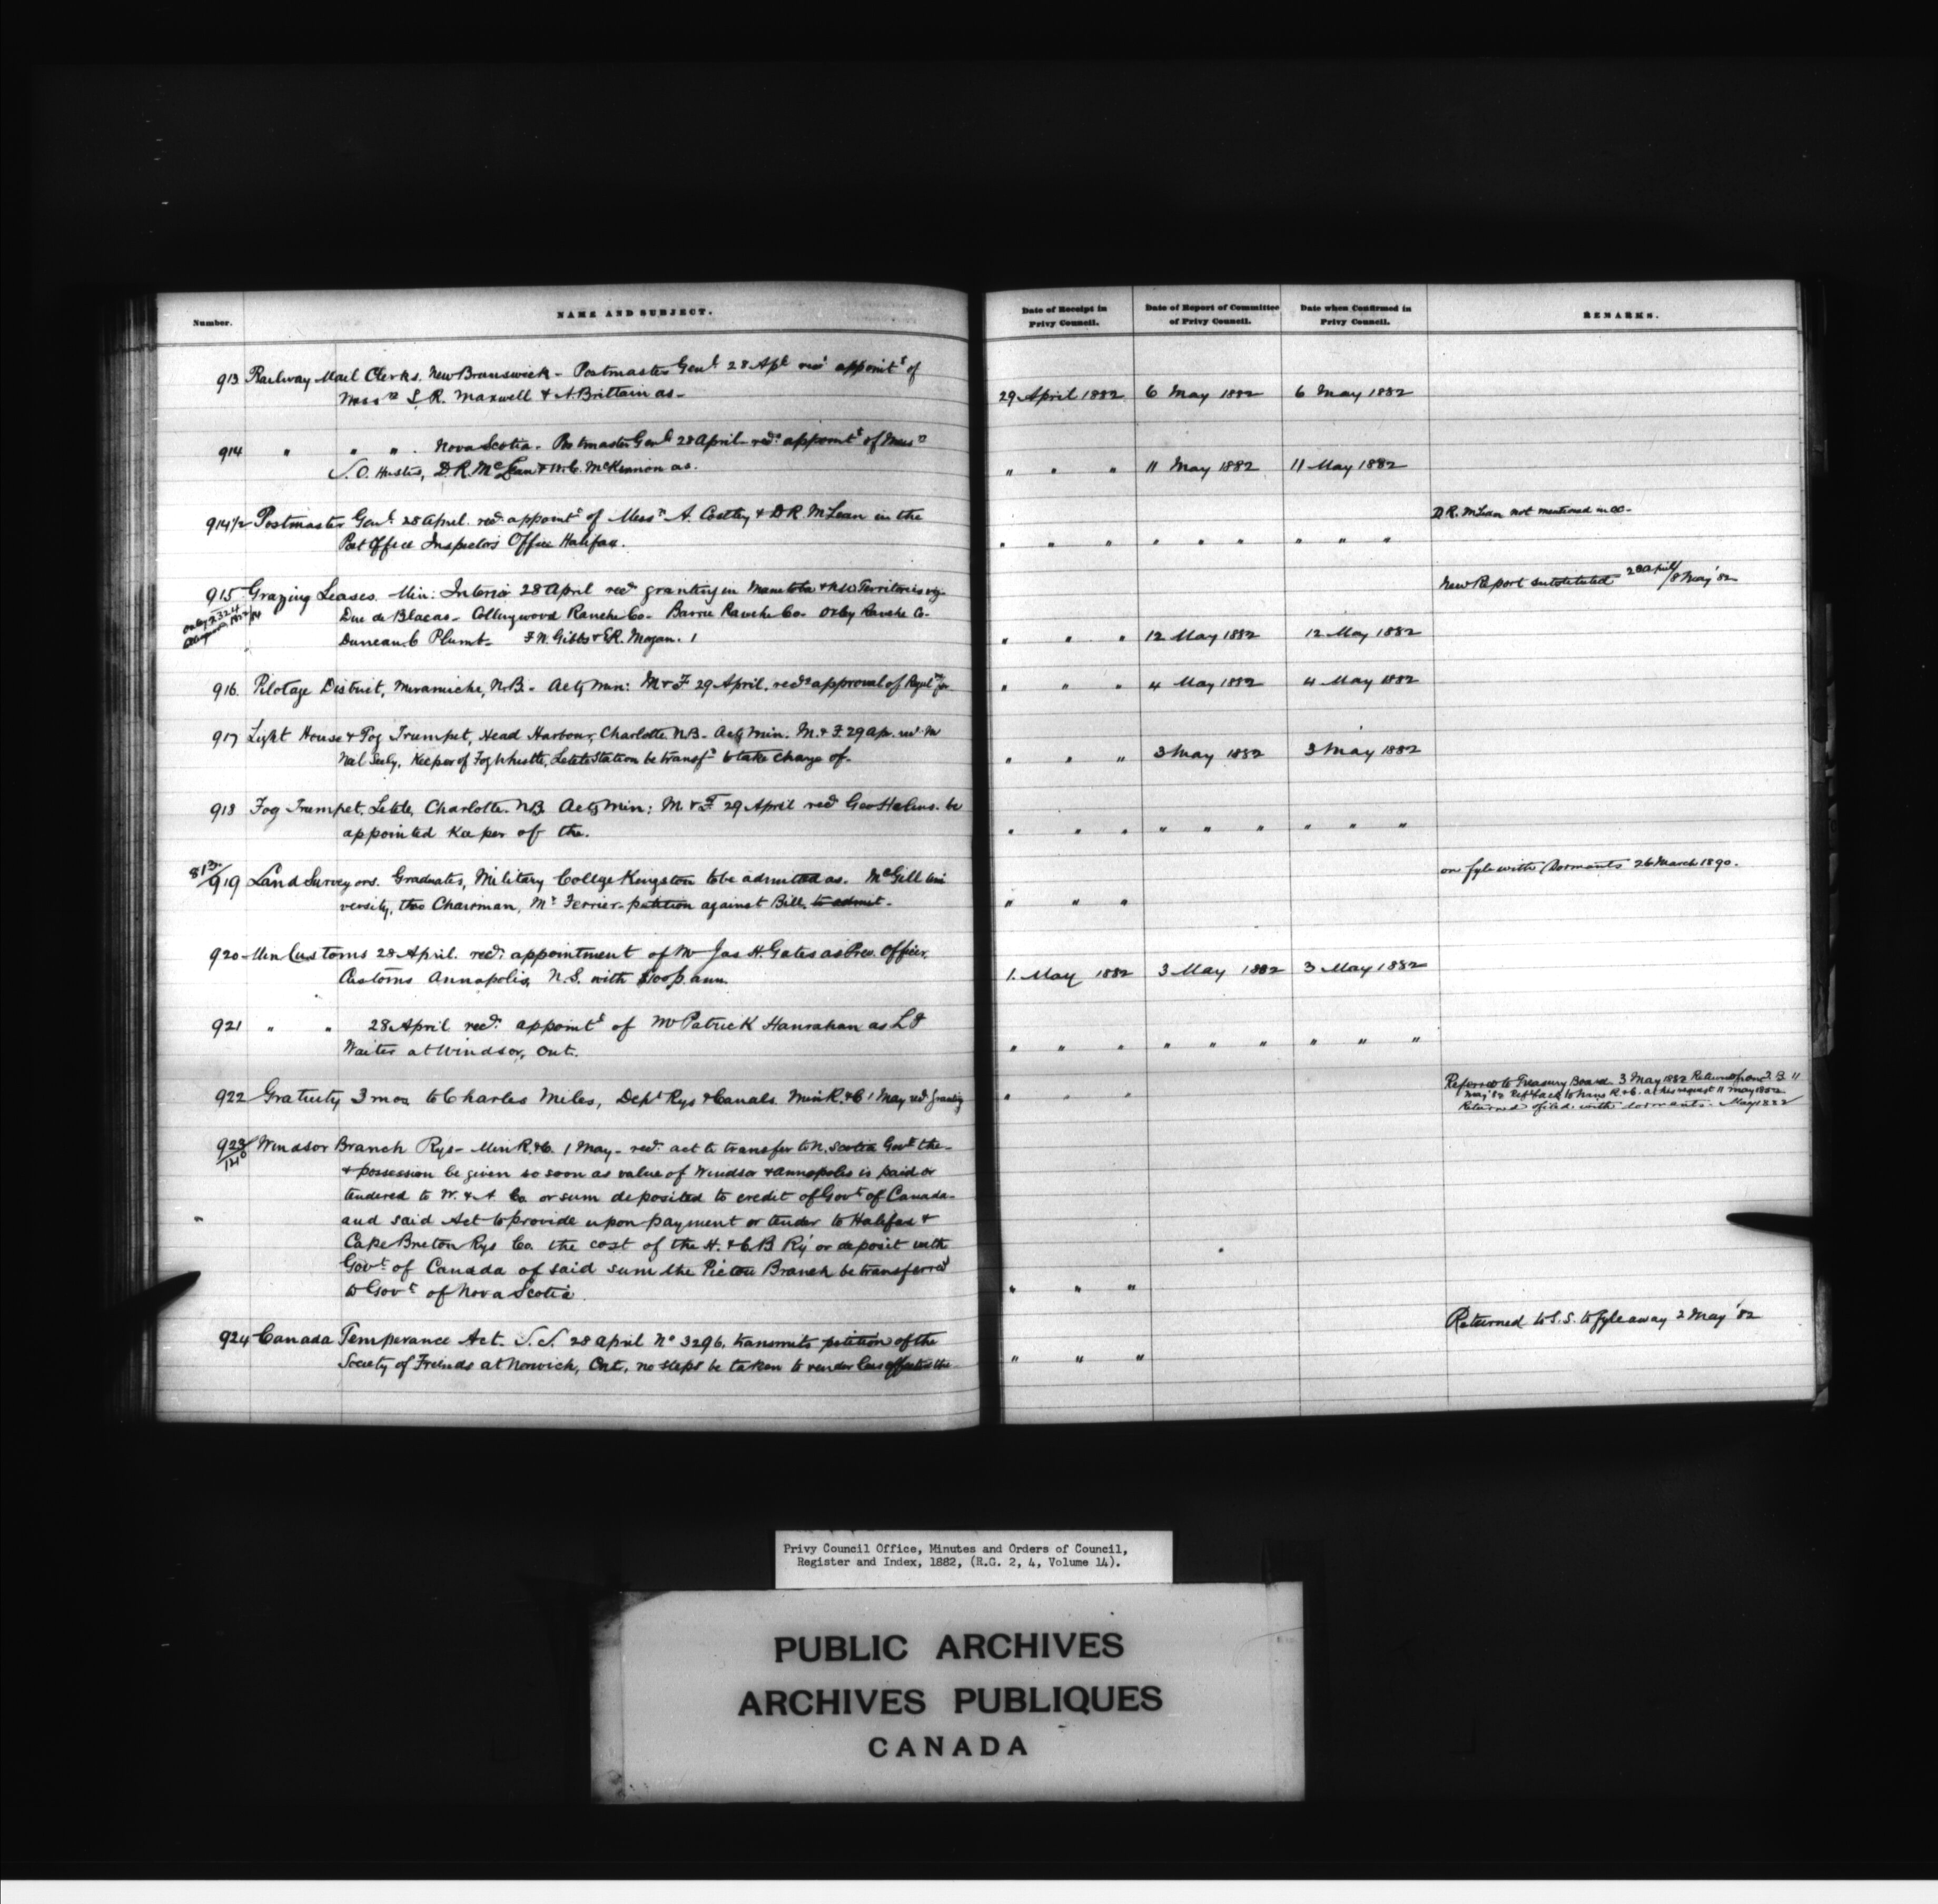 Number.
NAME AND SUBJECT.
Date of Receipt in Privy Council.
Date of Report of Committee of Privy Council.
Date when Confirmed in Privy Council.
REMARKS.
913 Railway Mail Clerks. New Brunswick - Postmaster Genl 28 Apl appointt of
Messrs S. R. Maxwell & A. Brittain as -
29 April 1882 6 May 1882 6 May 1882
914 " " " . Nova Scotia - Postmaster Genl 28 April recds appointt of Messrs
D. R. McLean & W. C. McKinnon as.
" " " 11 May 1882 11 May 1882
914 1/2 Postmaster Genl 28 April. recds appointt of Messrs A. Costley & D R. McLean in the
Post Office Inspectors Office Halifax.
" " " " " " " " "
D R. McLean not mentioned in OC -
915 Grazing Leases. Min: Interior 28 April recds granting in Manitoba & N.W. Territories viz
Duc de Blacas - Collingwood Ranche Co - Barrie Ranche Co. Oxley Ranche Co -
Duncan C Plumb - F. N. Gibbs & E R. Mogan. 1
" " " 12 May 1882 12 May 1882
New Report substituted 28 April/8 May '82
916. Pilotage District, Miramichi, N.B. - Actg Min: M & F 29 April. recds approval of Reguln for
" " " 4 May 1882 4 May 1882
917 Light House & Fog Trumpet, Head Harbour, Charlotte NB - Actg Min. M. & F. 29 Ap. recd Mr
Seely, Keeper of Fog Whistle, Letete Station be transfd to take charge of -
" " " 3 May 1882 3 May 1882
918 Fog Trumpet, Letete, Charlotte. NB. Actg Min: M & F 29 April recds Geo be
appointed Keeper of the.
" " " " " " " " "
813/919 Land Surveyors. Graduates, Military College Kingston to be admitted as. McGill Uni
versity, thro Chairman, Mr Ferrier - petition against Bill, to admit -
" " "
on fyle with Dormants 26 March 1890.
920 Min Customs 28 April. recds appointment of Mr Jas H. Gates as Prev. Officer,
Customs Annapolis, N.S. with p. ann.
1. May 1882 3 May 1882 3 May 1882
921 " " 28 April recds appointt of Mr Patrick Hanrahan as L &
Waiter at Windsor, Ont.
" " " " " " " " "
922 Gratuity 3 mos to Charles Miles, Dept Rys & Canals. Min R. & C 1 May recds granting
" " "
Referred to Treasury Board 3 May 1882 Returned from T. B. 11
May '82 Ref back to Minr R & C. at his request 11 May 1882
Returned & filed with dormants. May 1882
923/140 Windsor Branch Rys - Min R. & C. 1 May - recds act to transfer to N. Scotia Govt the -
& possession be given so soon as value of Windsor & Annapolis is paid or
tendered to W. & A. Co or sum deposited to credit of Govt of Canada -
and said Act to provide upon payment or tender to Halifax &
Cape Breton Rys Co. the cost of the H. & C B Ry or deposit with
Govt of Canada of said sum the Pictou Branch be transferred
to Govt of Nova Scotia.
" " "
924 Canada Temperance Act. S. S. 28 April No 3296, transmits petition of the
Society of Friends at Norwich, Ont, no steps be taken to render less effective the
" " "
Returned to S. S. to fyle away 2 May '82
Privy Council Office, Minutes and Orders of Council,
Register and Index, 1882, (R.G. 2, 4, Volume 14).
PUBLIC ARCHIVES
ARCHIVES PUBLIQUES
CANADA